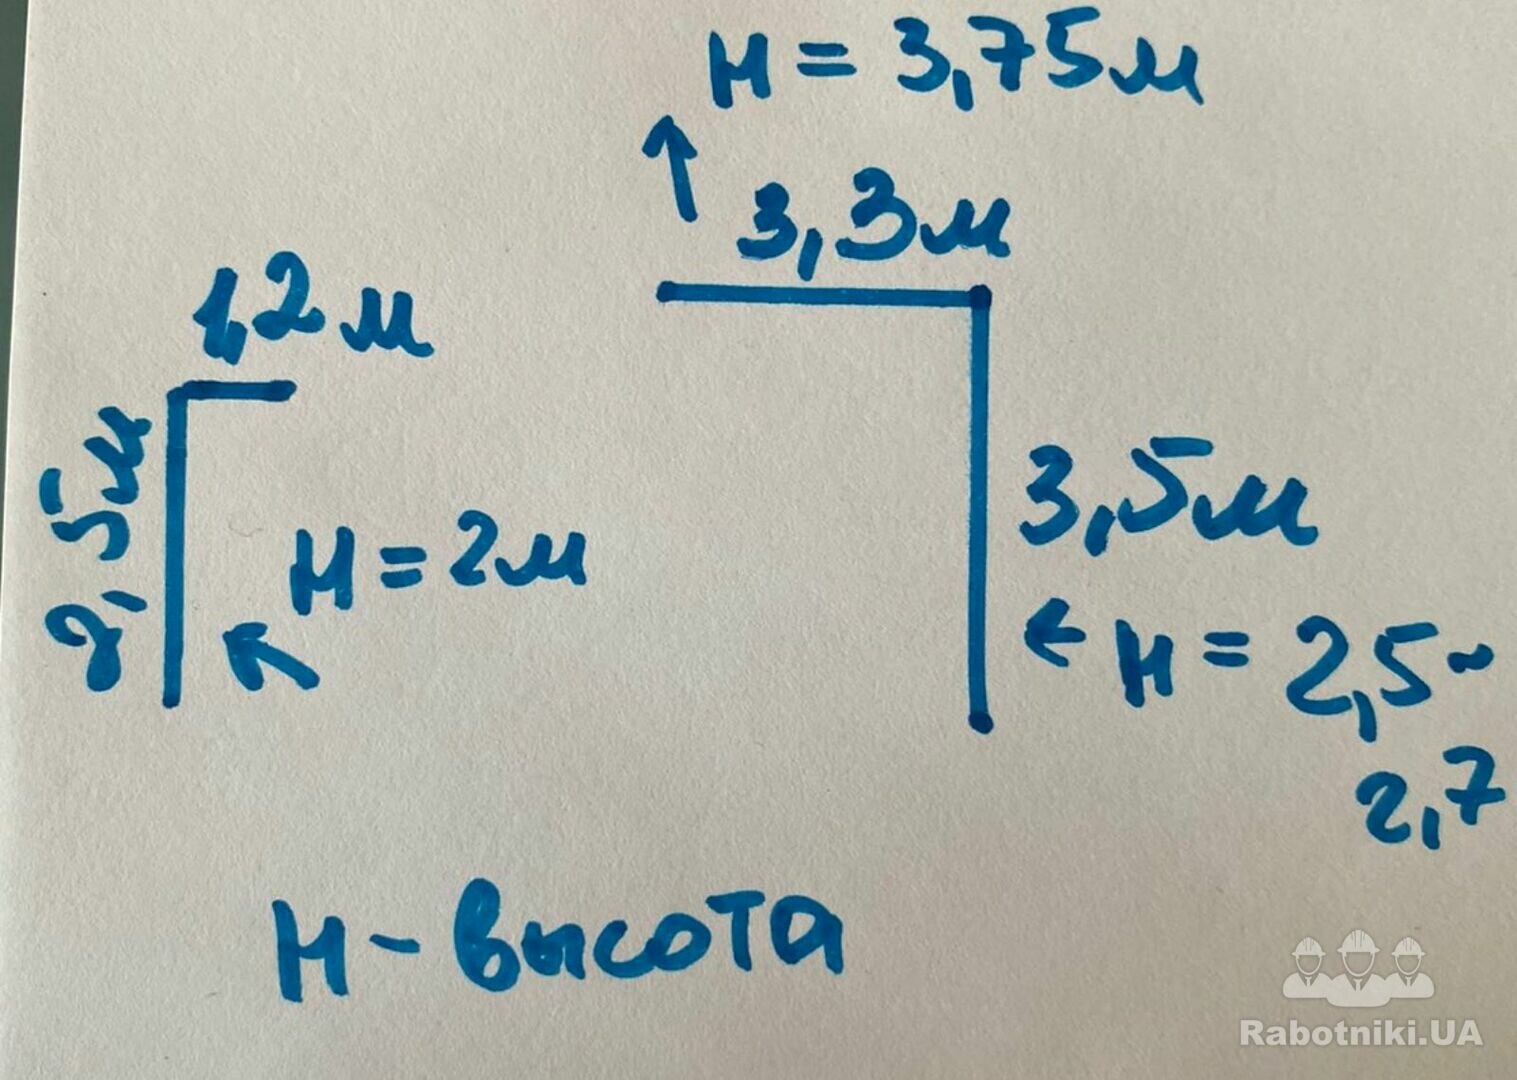 H = 3,75м
3,3м
1,2м
2,5м
H = 2м
3,5м
H = 2,5-
2,7
H - высота
Rabotniki.UA